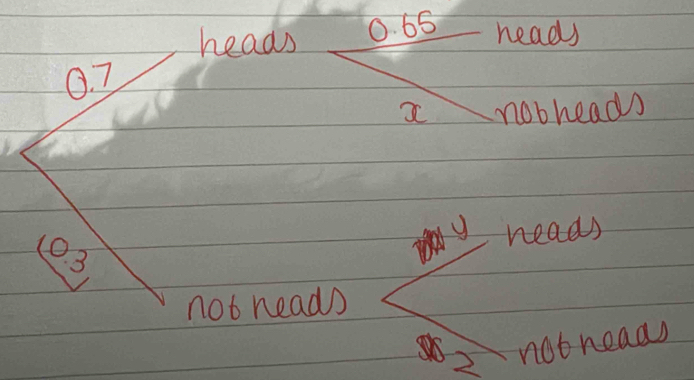 0.65
heads
heads
0.7
x
not heads
y
heads
0.3
not heads
z
not heads